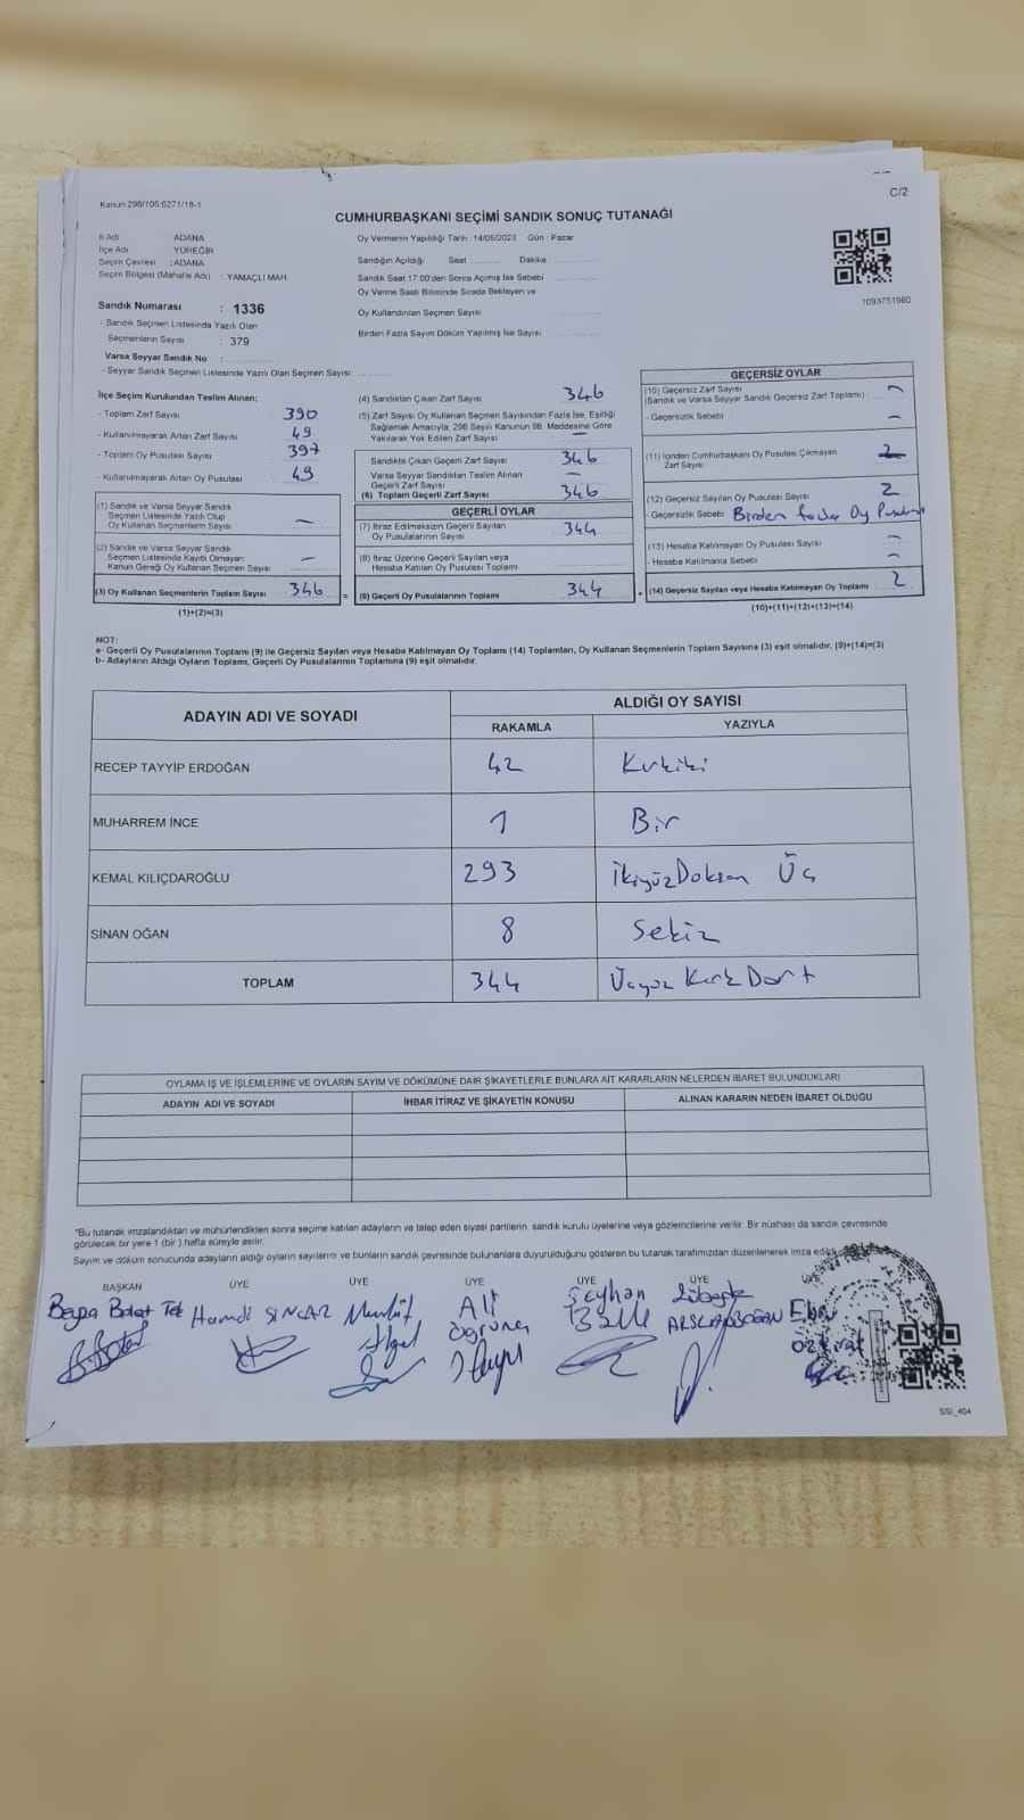 C/2
Kanun 298/105-6271/18-1
CUMHURBAŞKANI SEÇİMİ SANDIK SONUÇ TUTANAĞI
İl Adı ADANA
İlçe Adı YÜREĞİR
Seçim Çevresi : ADANA
Seçim Bölgesi (Mahalle Adı) : YAMAÇLI MAH.
Sandık Numarası : 1336
- Sandık Seçmen Listesinde Yazılı Olan
Seçmenlerin Sayısı : 379
Varsa Seyyar Sandık No :
- Seyyar Sandık Seçmen Listesinde Yazılı Olan Seçmen Sayısı:
Oy Vermenin Yapıldığı Tarih : 14/05/2023 Gün : Pazar
Sandığın Açıldığı Saat Dakika
Sandık Saat 17:00'den Sonra Açılmış İse Sebebi
Oy Verme Saati Bitiminde Sırada Bekleyen ve
Oy Kullandırılan Seçmen Sayısı
Birden Fazla Sayım Döküm Yapılmış İse Sayısı
1093751960
İlçe Seçim Kurulundan Teslim Alınan;
- Toplam Zarf Sayısı 390
- Kullanılmayarak Artan Zarf Sayısı 49
- Toplam Oy Pusulası Sayısı 397
- Kullanılmayarak Artan Oy Pusulası 49
(1) Sandık ve Varsa Seyyar Sandık
Seçmen Listesinde Yazılı Olup
Oy Kullanan Seçmenlerin Sayısı –
(2) Sandık ve Varsa Seyyar Sandık
Seçmen Listesinde Kayıtlı Olmayan
Kanun Gereği Oy Kullanan Seçmen Sayısı –
(3) Oy Kullanan Seçmenlerin Toplam Sayısı 346 =
(1)+(2)=(3)
(4) Sandıktan Çıkan Zarf Sayısı 346
(5) Zarf Sayısı Oy Kullanan Seçmen Sayısından Fazla İse, Eşitliği
Sağlamak Amacıyla, 298 Sayılı Kanunun 98. Maddesine Göre
Yakılarak Yok Edilen Zarf Sayısı –
Sandıkta Çıkan Geçerli Zarf Sayısı 346
Varsa Seyyar Sandıktan Teslim Alınan
Geçerli Zarf Sayısı –
(6) Toplam Geçerli Zarf Sayısı 346
GEÇERLİ OYLAR
(7) İtiraz Edilmeksizin Geçerli Sayılan
Oy Pusulalarının Sayısı 344
(8) İtiraz Üzerine Geçerli Sayılan veya
Hesaba Katılan Oy Pusulası Toplamı
(9) Geçerli Oy Pusulalarının Toplamı 344 +
GEÇERSİZ OYLAR
(10) Geçersiz Zarf Sayısı
(Sandık ve Varsa Seyyar Sandık Geçersiz Zarf Toplamı) –
- Geçersizlik Sebebi –
(11) İçinden Cumhurbaşkanı Oy Pusulası Çıkmayan
Zarf Sayısı
(12) Geçersiz Sayılan Oy Pusulası Sayısı 2
- Geçersizlik Sebebi Birden fazla Oy Pusulası
(13) Hesaba Katılmayan Oy Pusulası Sayısı –
- Hesaba Katılmama Sebebi –
(14) Geçersiz Sayılan veya Hesaba Katılmayan Oy Toplamı 2
(10)+(11)+(12)+(13)=(14)
NOT:
a- Geçerli Oy Pusulalarının Toplamı (9) ile Geçersiz Sayılan veya Hesaba Katılmayan Oy Toplamı (14) Toplamları, Oy Kullanan Seçmenlerin Toplam Sayısına (3) eşit olmalıdır, (9)+(14)=(3)
b- Adayların Aldığı Oyların Toplamı, Geçerli Oy Pusulalarının Toplamına (9) eşit olmalıdır.
ADAYIN ADI VE SOYADI ALDIĞI OY SAYISI
RAKAMLA YAZIYLA
RECEP TAYYİP ERDOĞAN 42 Kırkiki
MUHARREM İNCE 1 Bir
KEMAL KILIÇDAROĞLU 293 İkiyüzDoksan Üç
SİNAN OĞAN 8 Sekiz
TOPLAM 344 Üçyüz Kırk Dört
OYLAMA İŞ VE İŞLEMLERİNE VE OYLARIN SAYIM VE DÖKÜMÜNE DAİR ŞİKAYETLERLE BUNLARA AİT KARARLARIN NELERDEN İBARET BULUNDUKLARI
ADAYIN ADI VE SOYADI İHBAR İTİRAZ VE ŞİKAYETİN KONUSU ALINAN KARARIN NEDEN İBARET OLDUĞU
*Bu tutanak imzalandıktan ve mühürlendikten sonra seçime katılan adayların ve talep eden siyasi partilerin, sandık kurulu üyelerine veya gözlemcilerine verilir. Bir nüshası da sandık çevresinde
görülecek bir yere 1 (bir) hafta süreyle asılır.
Sayım ve döküm sonucunda adayların aldığı oyların sayılarını ve bunların sandık çevresinde bulunanlara duyurulduğunu gösteren bu tutanak tarafımızdan düzenlenerek imza edildi
BAŞKAN ÜYE ÜYE ÜYE ÜYE ÜYE
Beyza Bolat Tek Hamdi SINCAR Ali Seyhan ARSLANBOĞAN Ebru
SSI_404